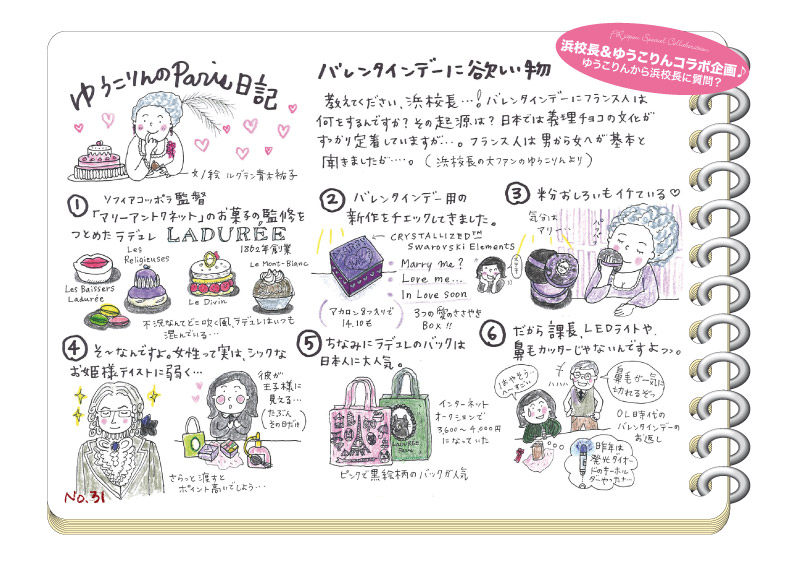 PRgian Special Collaboration
浜校長&ゆうこりんコラボ企画♪
ゆうこりんから浜校長に質問?
ゆうこりんのParis日記
文/絵 ルグラン青木祐子
バレンタインデーに欲しい物
教えてください、浜校長…!バレンタインデーにフランス人は
何をするんですか?その起源は?日本では義理チョコの文化が
すっかり定着していますが…。フランス人は男から女へが基本と
聞きましたが…。(浜校長の大ファンのゆうこりんより)
①
ソフィアコッポラ監督
「マリーアントワネット」のお菓子の監修を
つとめたラデュレ LADURÉE
1862年創業
Les Baisers
Ladurée
Les
Religieuses
Le Divin
Le Mont-Blanc
不況なんてどこ吹く風、ラデュレはいつも
混んでいる…
②
バレンタインデー用の
新作をチェックしてきました。
CRYSTALLIZED™
Swarovski Elements
Marry me?
Love me...
In Love soon
(マカロン8つ入りで
14.10€)
3つの愛のささやき
BOX!!
③
粉おしろいもイケている♡
気分は
マリー…
④
そ〜なんですよ。女性って実は、シックな
お姫様テイストに弱く…
彼が
王子様に
見える…
(たぶん
その日だけ)
さらっと渡すと
ポイント高いでしょう…
No.31
⑤
ちなみにラデュレのバックは
日本人に大人気。
LADURÉE
Paris
インターネット
オークションで
3600〜4,000円
になっていた
ピンクで黒絵柄のバックが人気
⑥
だから課長、LEDライトや、
鼻毛カッターじゃないんですよっっ。
鼻毛が一気に
切れるぞっ
OL時代の
バレンタインデーの
お返し
昨年は
発光ダイオー
ドのキーホル
ダーやったナ…